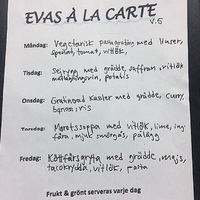 EVAS À LA CARTE
V.5
Måndag: Vegetarisk pastagratäng med linser,
spenat, tomat, vitlök,
Tisdag: Sejrygg med grädde, saffran, vitlök
matlagningsvin, potatis
Onsdag: Gratinerad Kasler med grädde, curry,
banan, ris
Torsdag: Morotssoppa med vitlök, lime, ing-
fära, mjuk smörgås, pålägg
Fredag: Köttfärsgryta med grädde, majs,
tacokrydda, vitlök, pasta
Frukt & grönt serveras varje dag